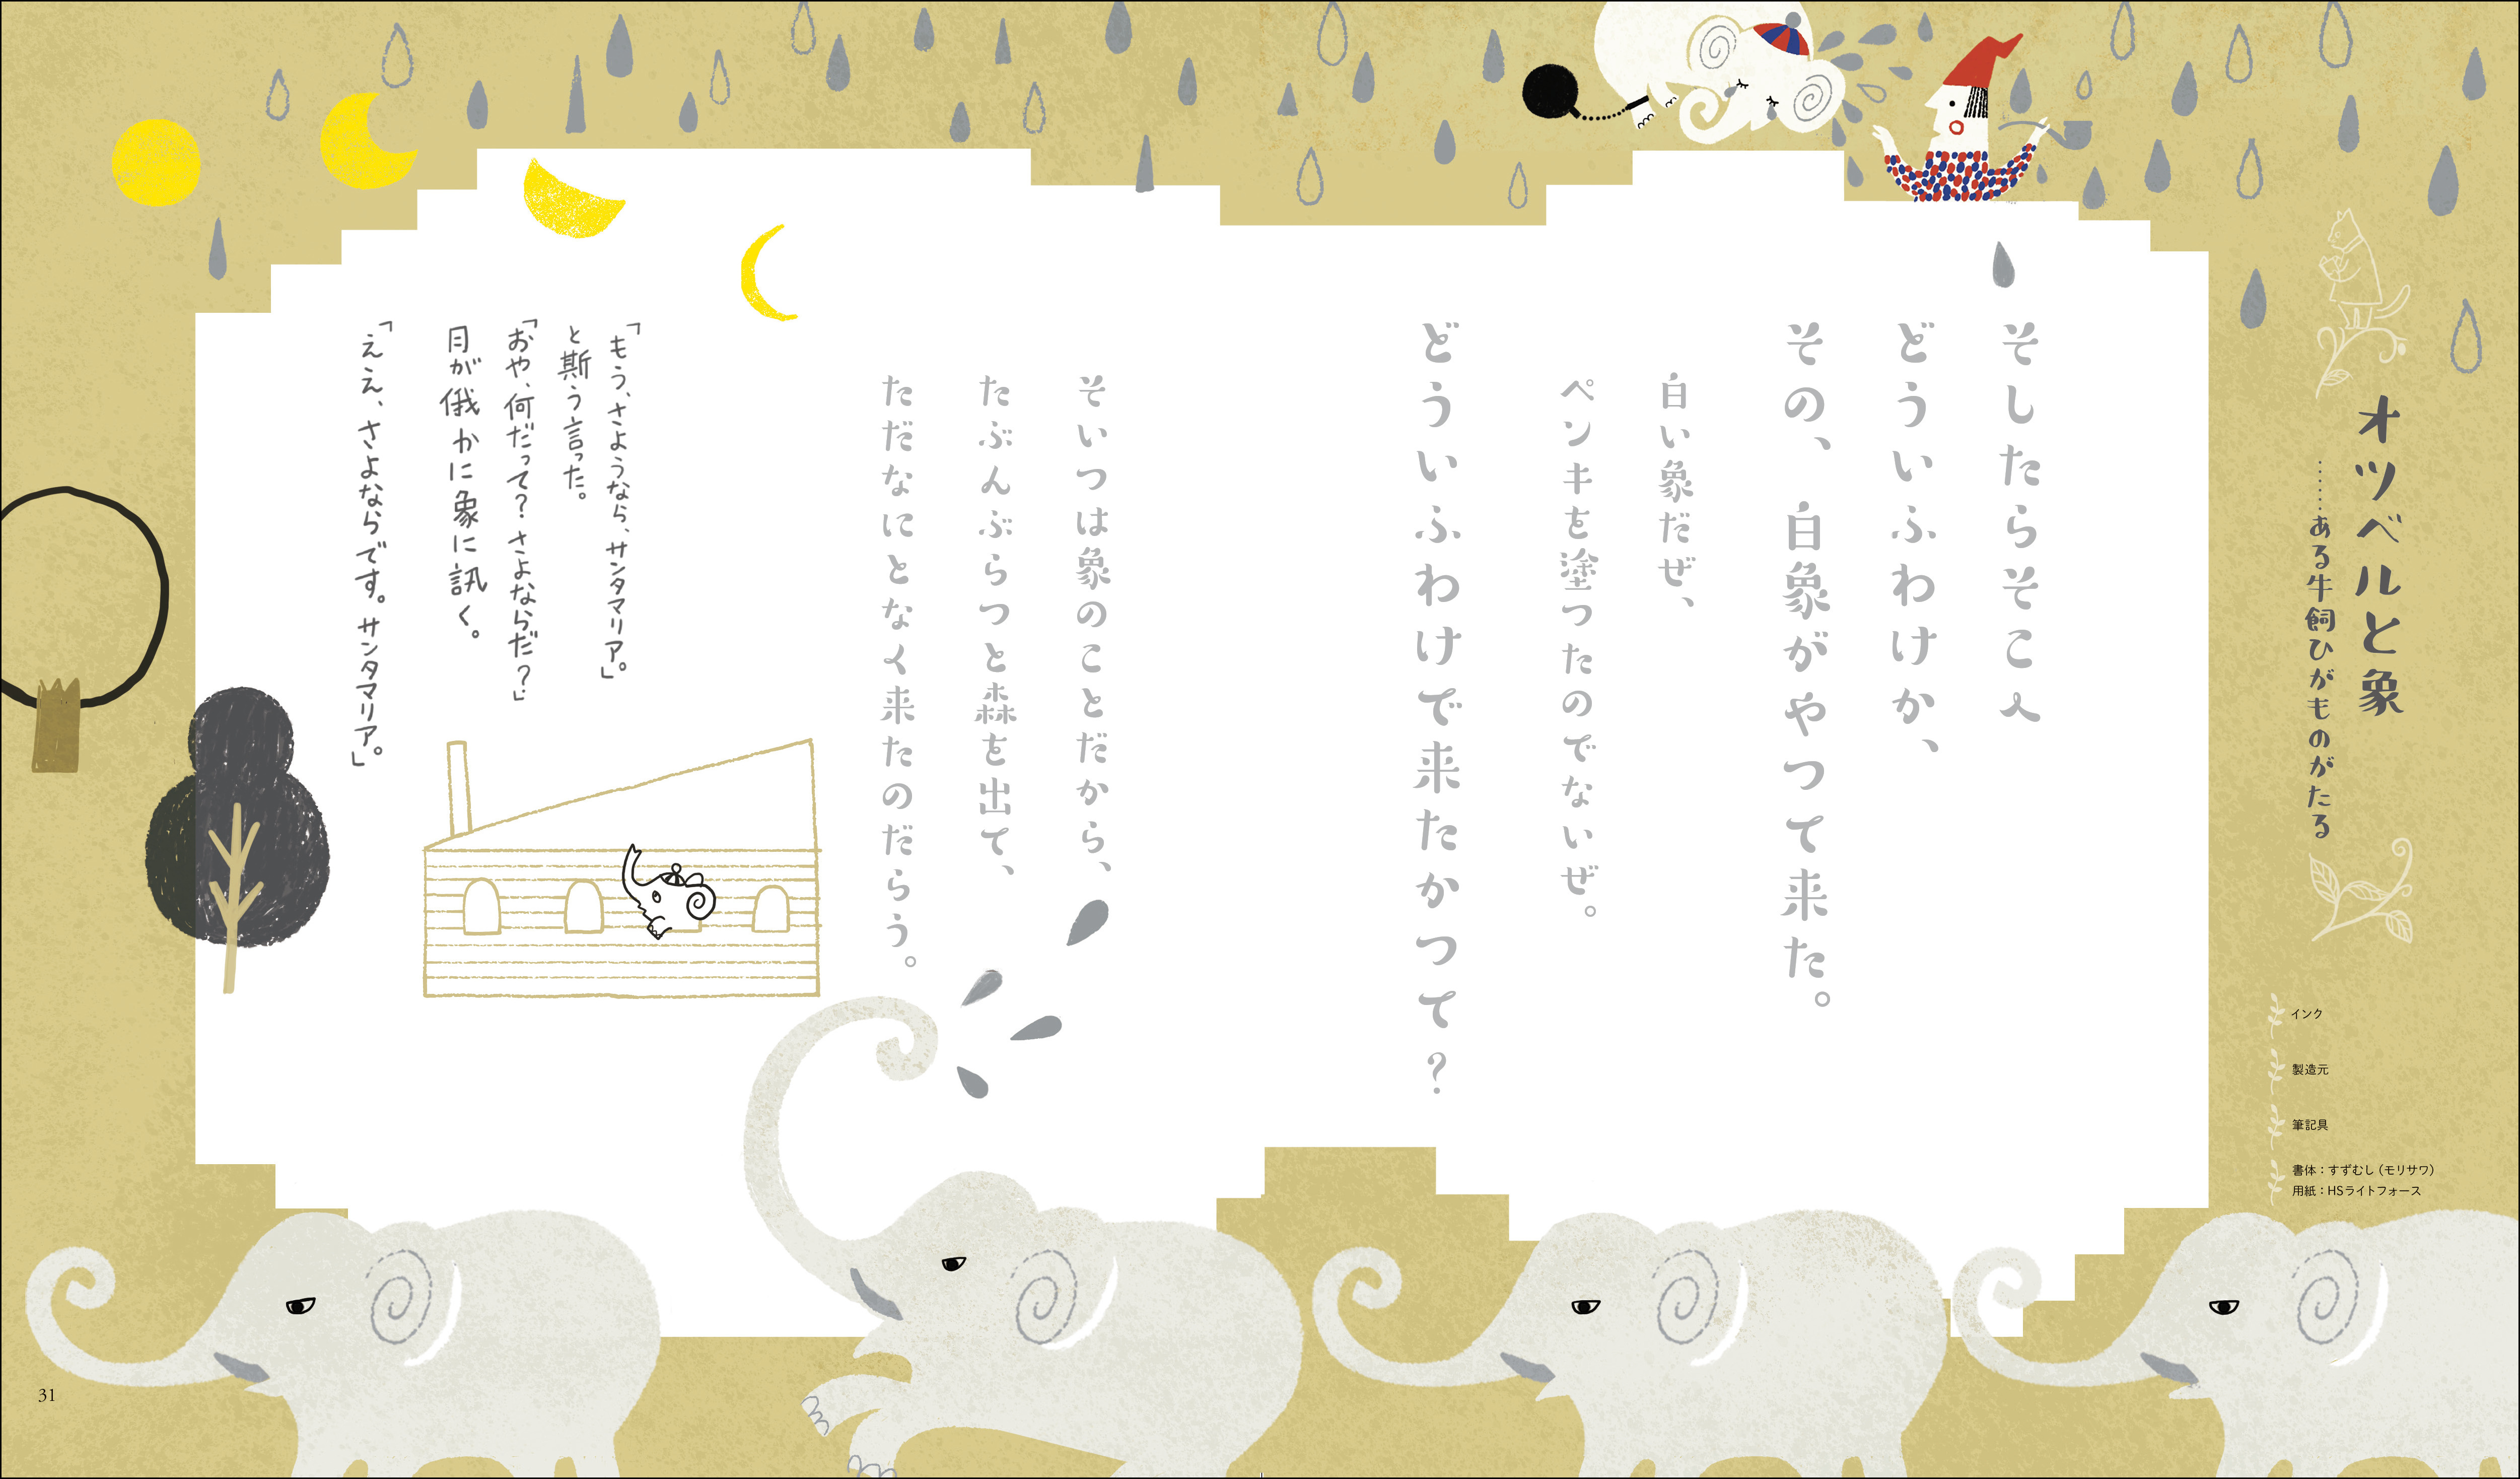 オツベルと象
……ある牛飼ひがものがたる
インク
製造元
筆記具
書体：すずむし（モリサワ）
用紙：HSライトフォース
そしたらそこへ
どういふわけか、
その、白象がやつて来た。
白い象だぜ、
ペンキを塗つたのでないぜ。
どういふわけで来たかつて？
そいつは象のことだから、
たぶんぶらつと森を出て、
ただなにとなく来たのだらう。
「もう、さようなら、サンタマリア。」
と斯う言った。
「おや、何だって？さよならだ？」
月が俄かに象に訊く。
「ええ、さよならです。サンタマリア。」
31